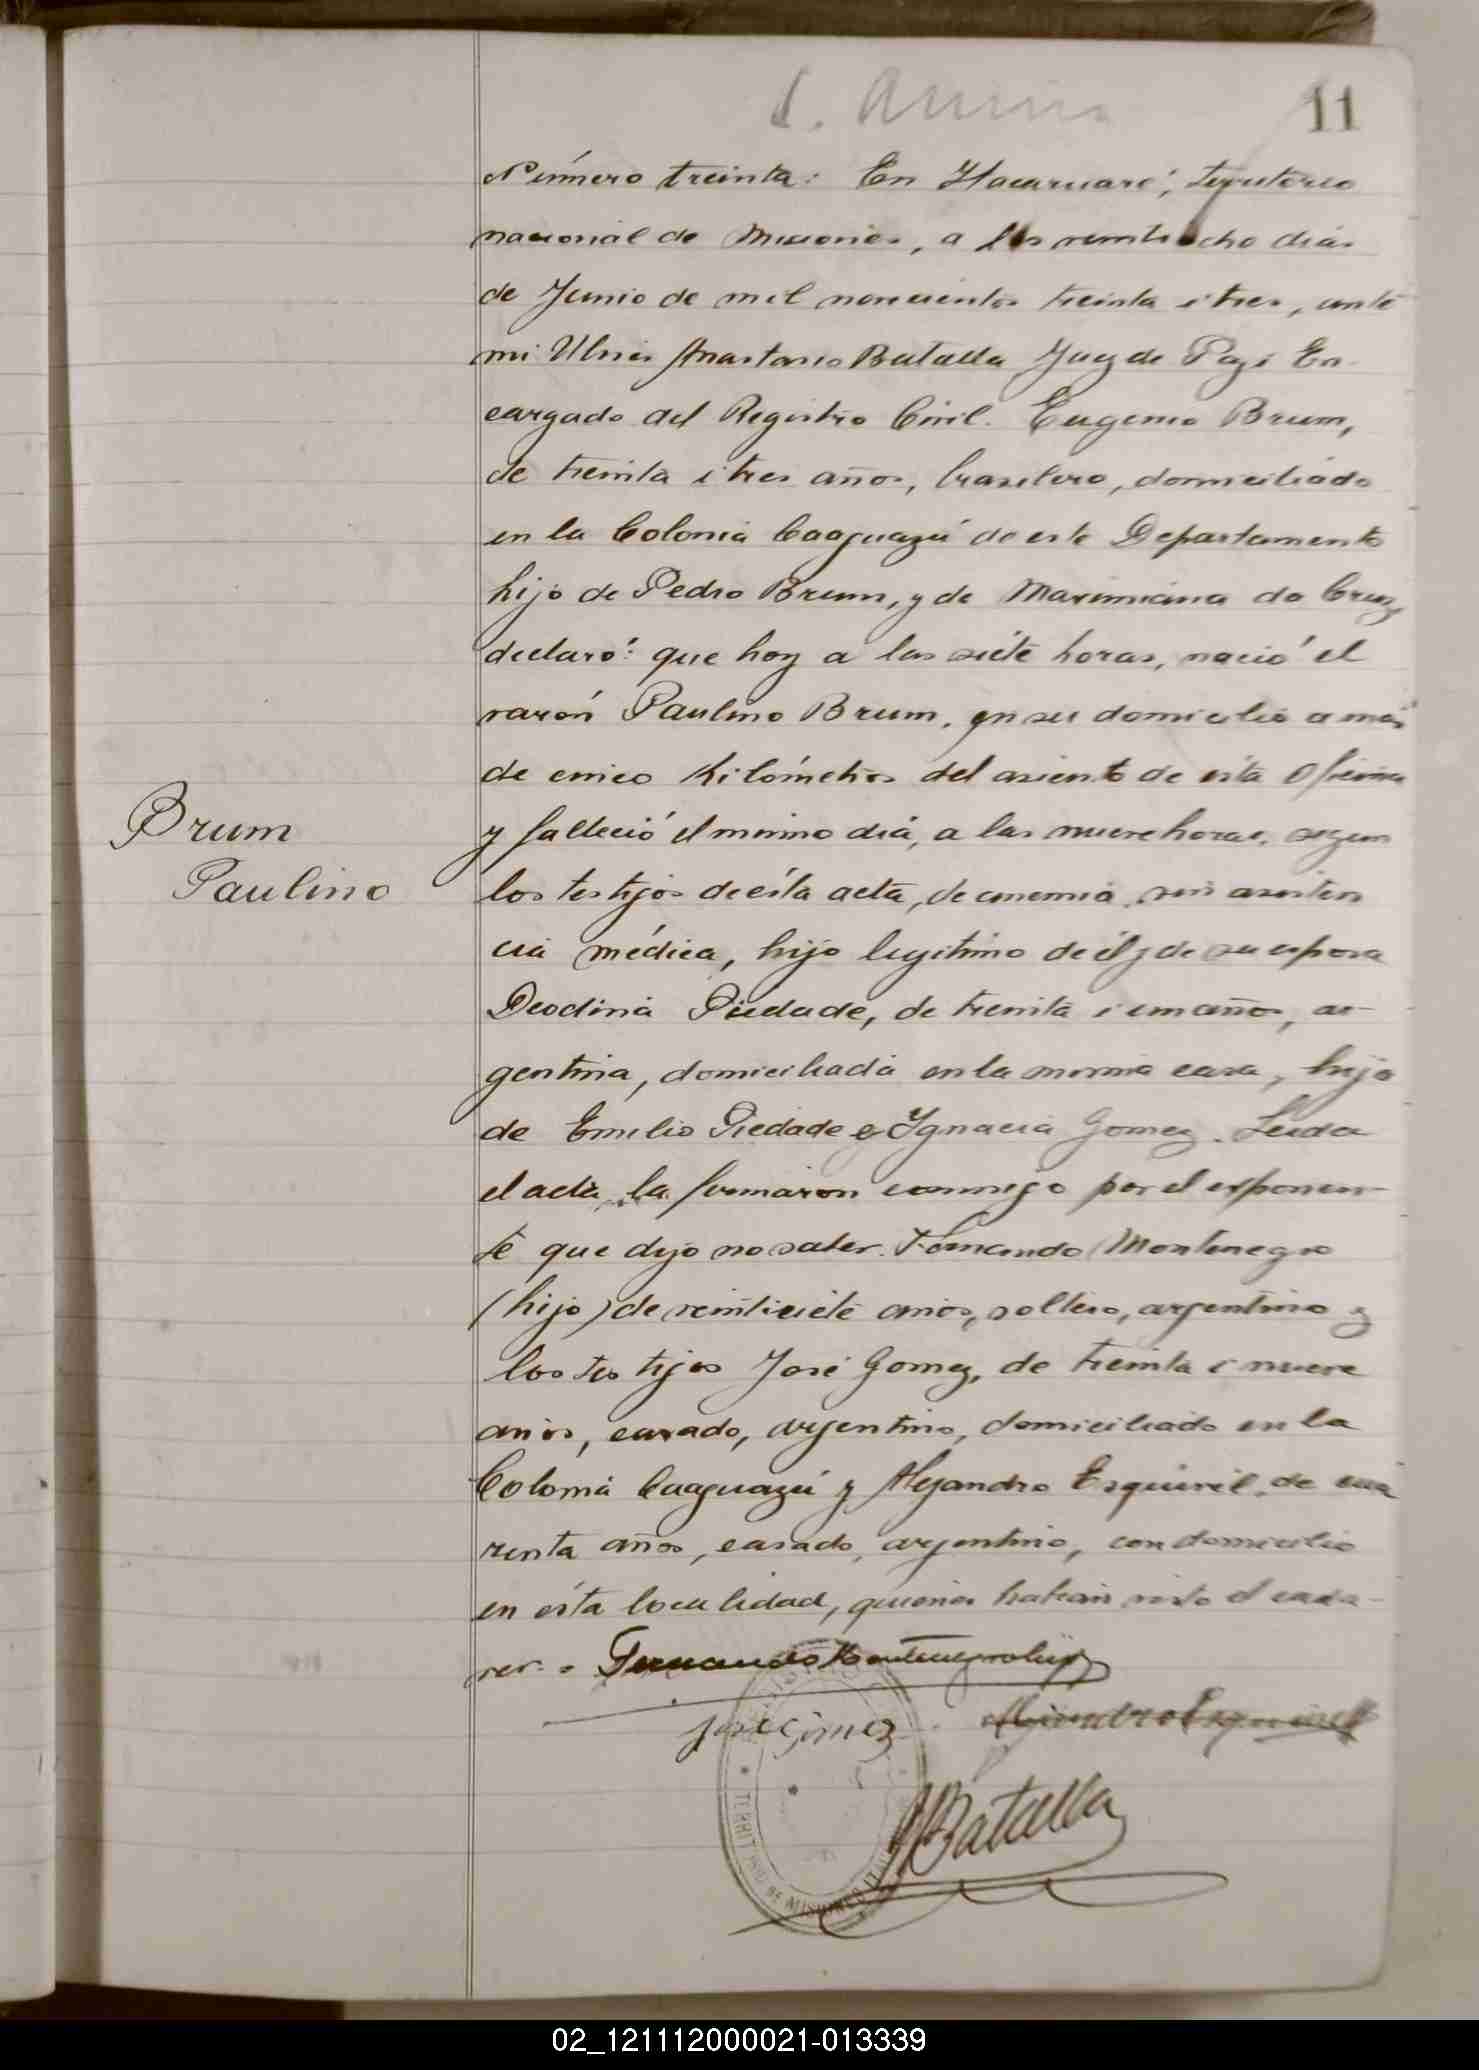 11
Número treinta: En Itacaruaré, territorio
nacional de Misiones, a los veintiocho dias
de Junio de mil novecientos treinta i tres, ante
mi Ulises Anastasio Batalla Juez de Paz i En
cargado del Registro Civil. Eugenio Brum,
de treinta i tres años, brasilero, domiciliado
en la Colonia Caaguazú de este Departamento
hijo de Pedro Brum, y de Maximiana da Cruz,
declaró: que hoy a las siete horas, nació el
varón Paulino Brum, en su domicilio a más
de cinco kilómetros del asiento de ésta Oficina
Brum
Paulino
y falleció el mismo dia, a las nueve horas, segun
los testijos de ésta acta, de anemia, sin asisten
cia médica, hijo lejitimo de él y de su esposa
Deodina Piedade, de treinta i un años, ar-
gentina, domiciliada en la misma casa, hija
de Emilio Piedade e Ygnacia Gomez. Leida
el acta, la firmaron conmigo por el exponen-
te que dijo no saber. Fernando Montenegro
(hijo) de veintisiete años, soltero, argentino y
los testijos José Gomez, de treinta i nueve
años, casado, arjentino, domiciliado en la
Colonia Caaguazú y Alejandro Esquivel, de cua
renta años, casado, arjentino, con domicilio
en ésta localidad, quienes habian visto el cada-
ver. = Fernando Montenegro hijo
jose Gimez Alejandro Esquivel
Batalla
TERRITORIO DE MISIONES
02_121112000021-013339